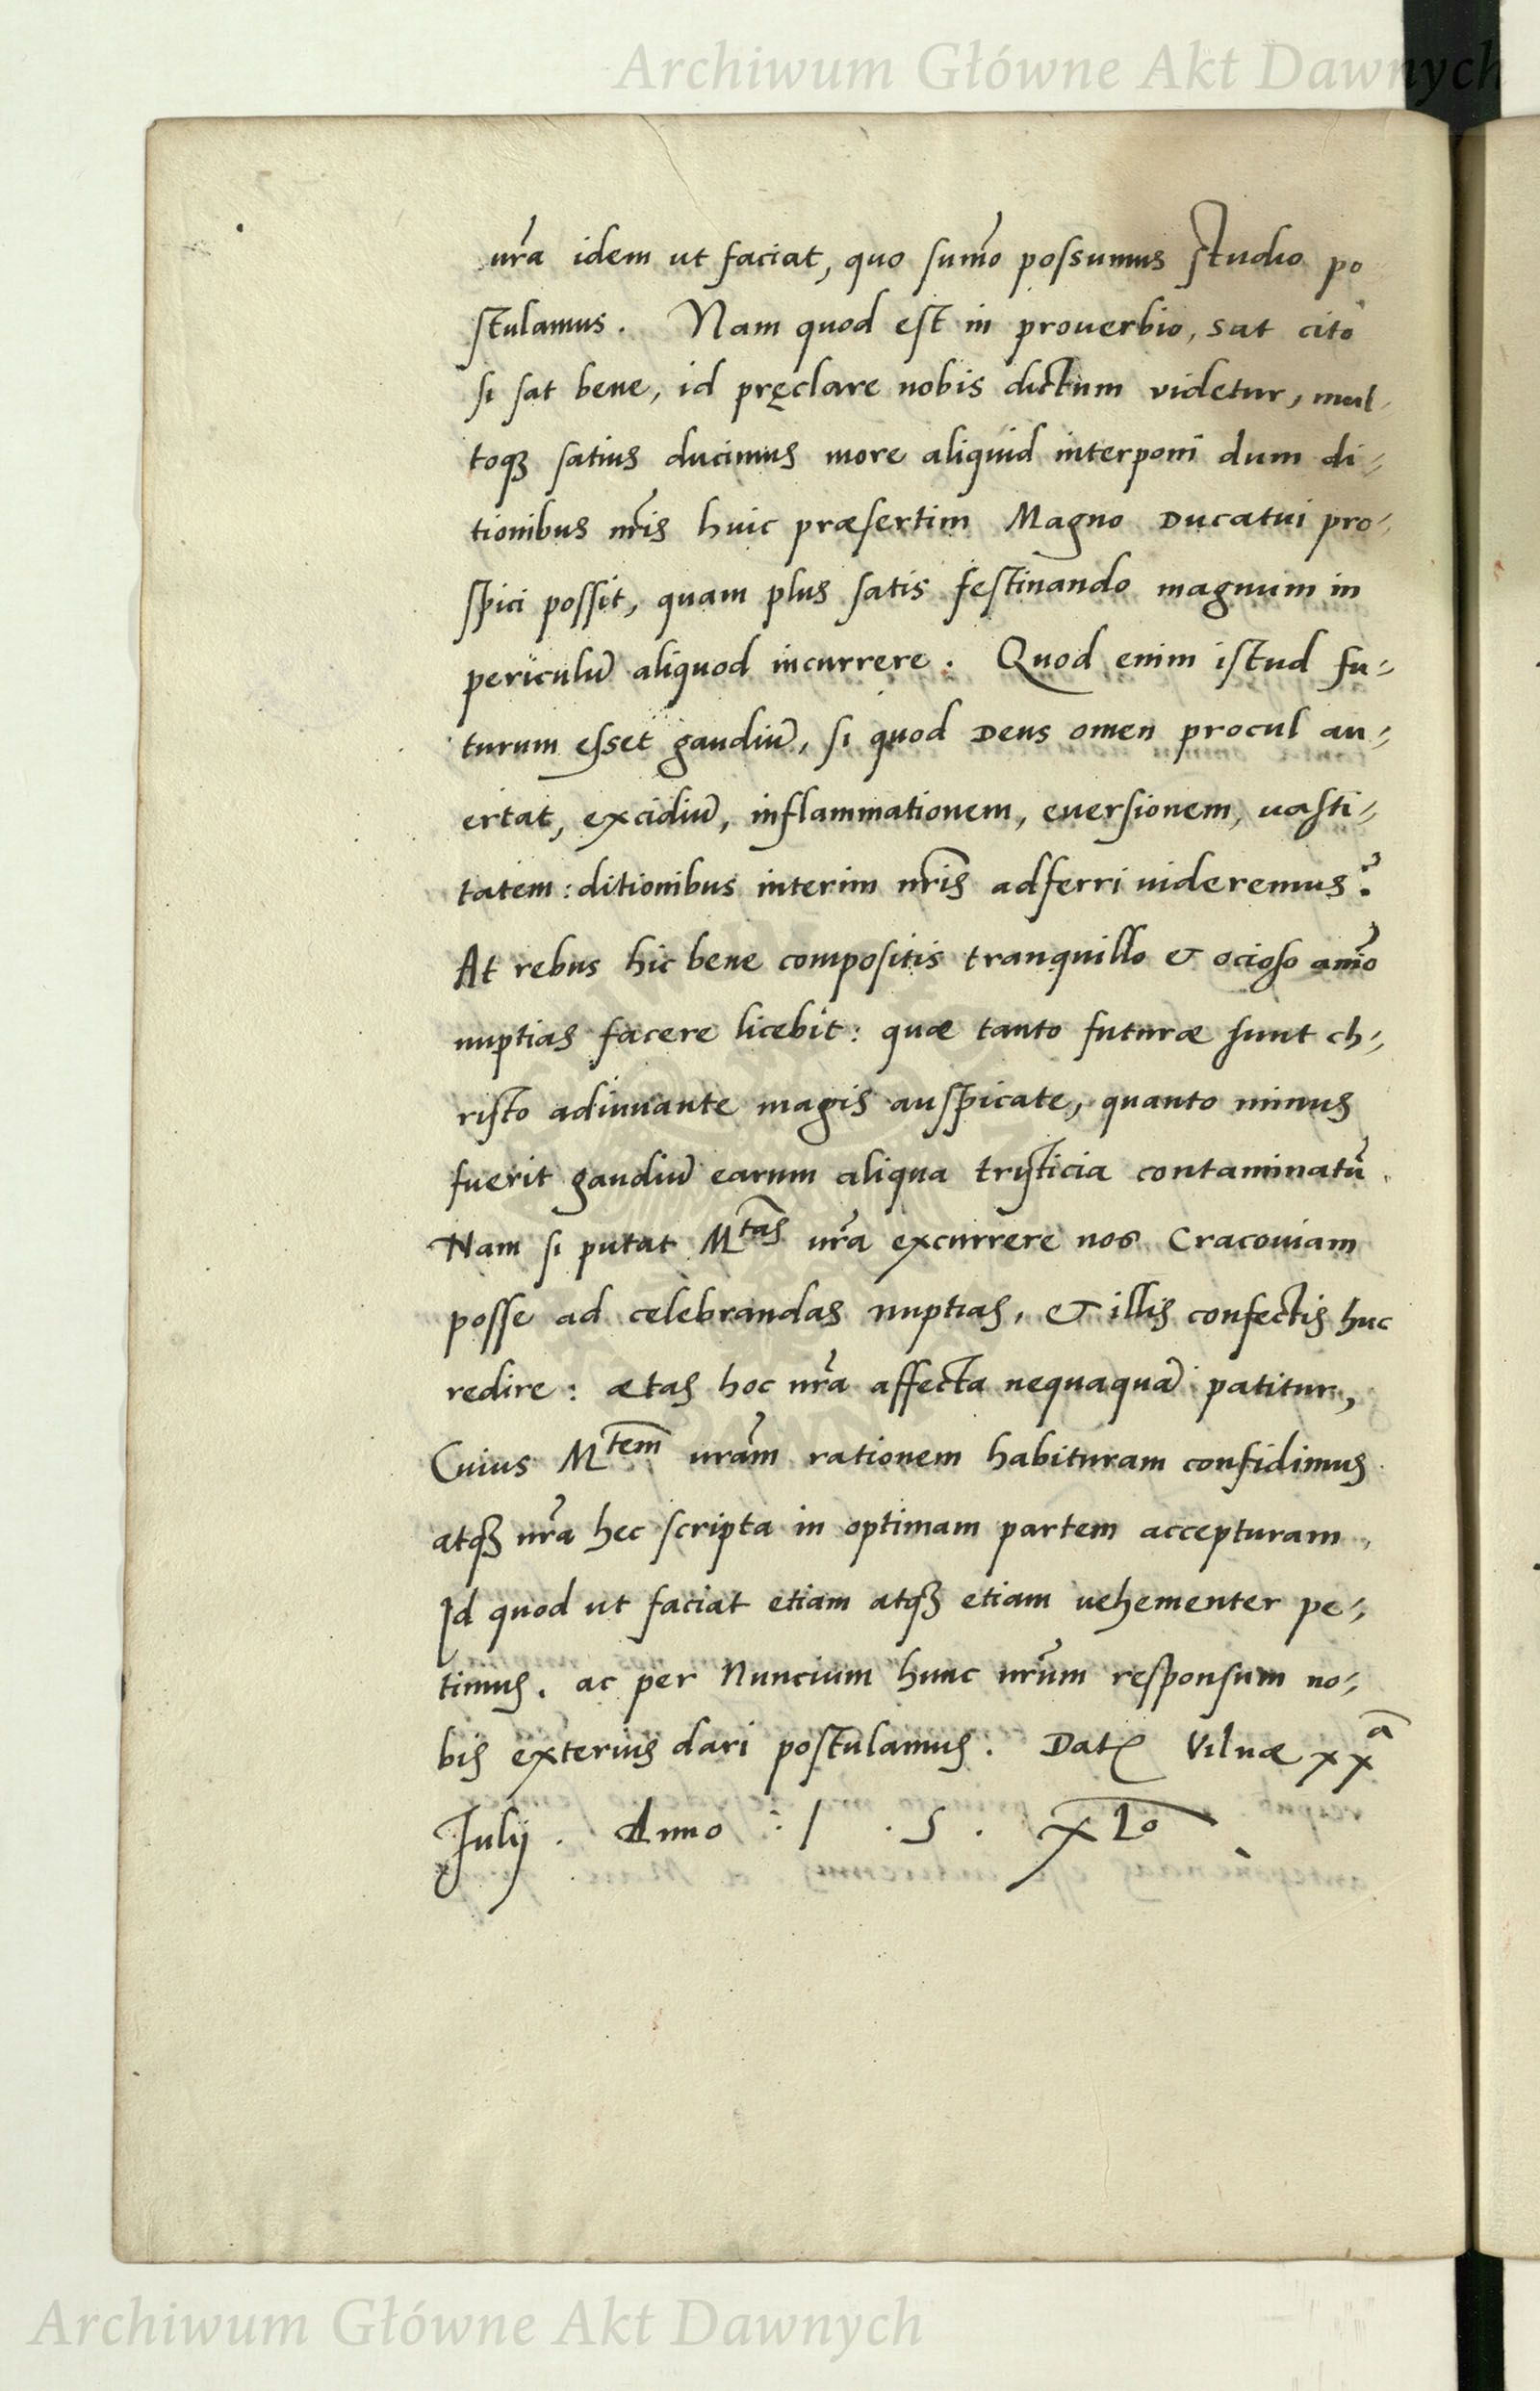 Archiwum Główne Akt Dawnych
vr̃a idem ut faciat, quo sum̃o possumus studio po
stulamus. Nam quod est in prouerbio, sat cito
si sat bene, id pręclare nobis dictum videtur, mul-
toqȝ satius ducimus more aliquid interponi dum di-
tionibus nr̃is huic præsertim Magno Ducatui pro-
spici possit, quam plus satis festinando magnum in
periculũ aliquod incurrere. Quod enim istud fu-
turum esset gaudiũ, si quod Deus omen procul au-
ertat, excidiũ, inflammationem, euersionem, uasti-
tatem: ditionibus interim nr̃is adferri uideremus?
At rebus hic bene compositis tranquillo & ocioso anĩo
nuptias facere licebit: quæ tanto futuræ sunt ch-
risto adiuuante magis auspicate, quanto minus
fuerit gaudiũ earum aliqua tristicia contaminatũ.
Nam si putat M^tas vr̃a excurrere nos Cracouiam
posse ad celebrandas nuptias, & illis confectis huc
redire: ætas hoc nr̃a affecta nequaquã patitur,
Cuius M^tem vrãm rationem habituram confidimus
atqȝ nr̃a hec scripta in optimam partem accepturam.
Id quod ut faciat etiam atqȝ etiam uehementer pe-
timus. ac per Nuncium hunc nr̃um responsum no-
bis exterius dari postulamus. Dat Vilnæ xx^a
Julij. Anno : 1 . 5 . XLo
Archiwum Główne Akt Dawnych